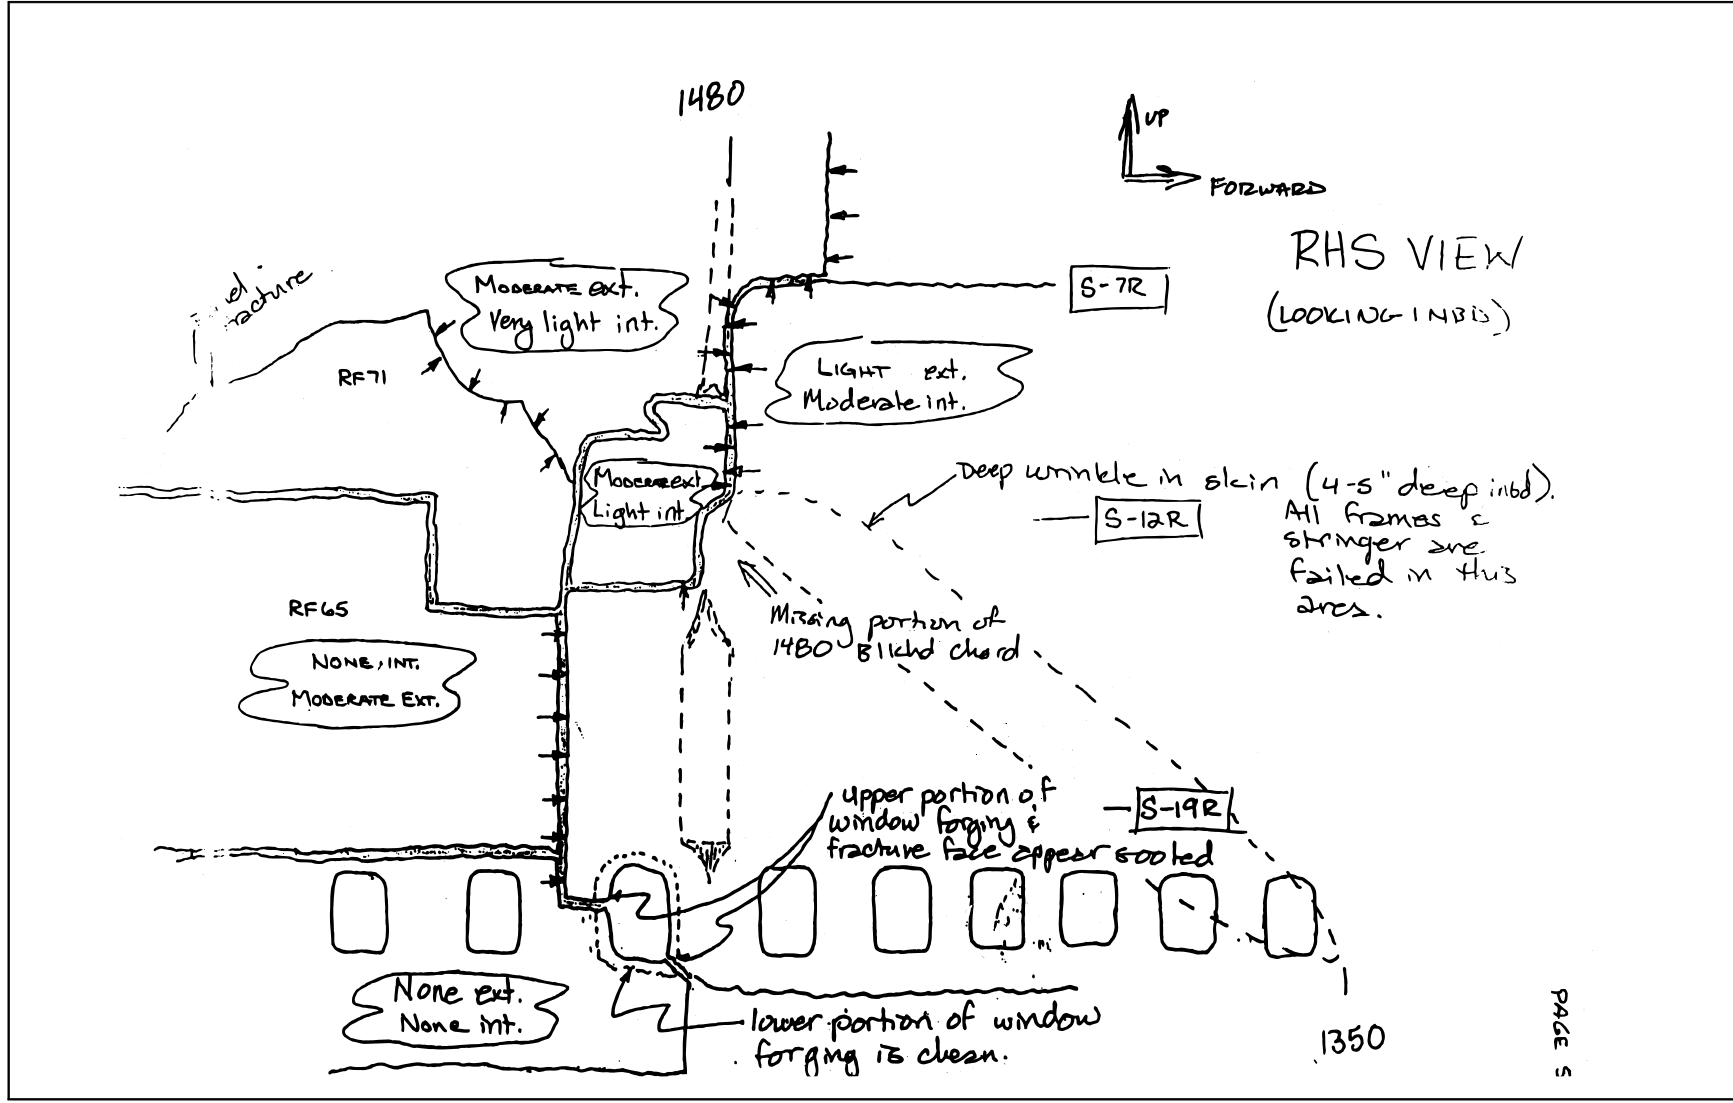 1480
UP
FORWARD
RHS VIEW
(LOOKING INBD)
S-7R
racture
MODERATE ext.
Very light int.
RF71
LIGHT ext.
Moderate int.
Moderate ext
Light int
Deep wrinkle in skin (4-5" deep inbd).
All frames &
stringer are
failed in this
area.
S-12R
RF65
NONE, INT.
MODERATE EXT.
Missing portion of
1480 Blkhd chord
upper portion of
window forging &
fracture face appear sooted
S-19R
None ext.
None int.
lower portion of window
forging is clean.
1350
PAGE 5